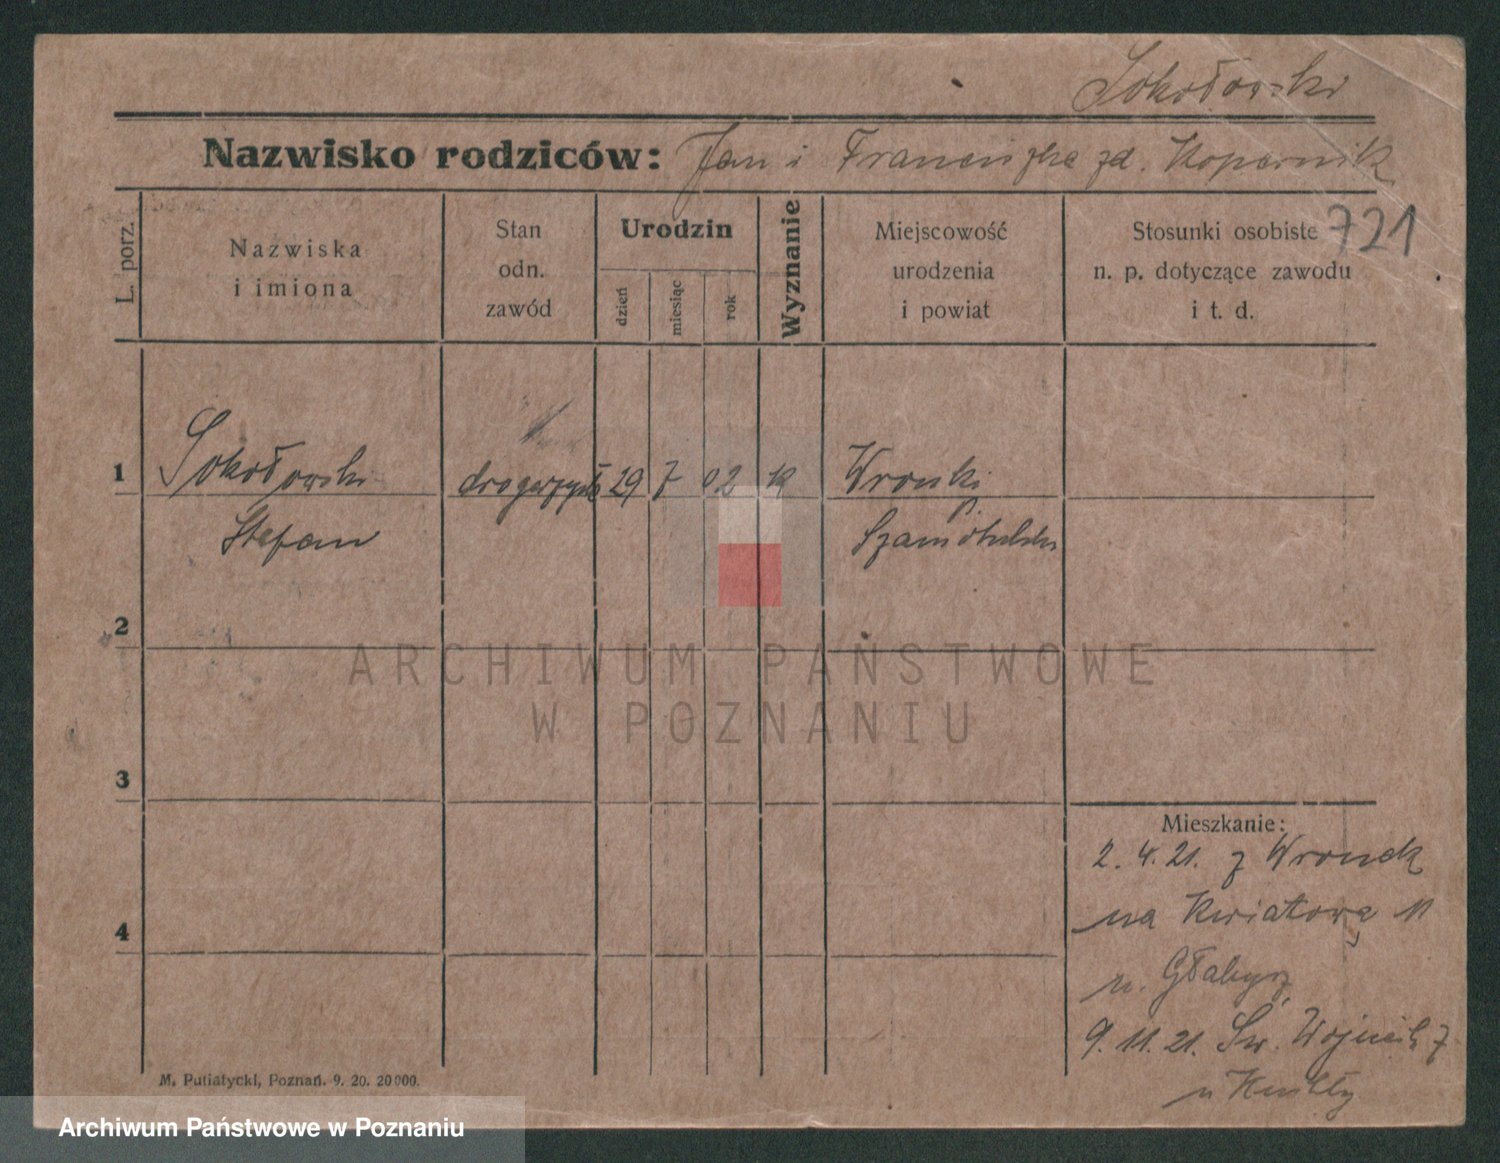 Sokołowski
Nazwisko rodziców: Jan i Franciszka zd. Kopernik
L. porz.
Nazwiska
i imiona
Stan
odn.
zawód
Urodzin
dzień
miesiąc
rok
Wyznanie
Miejscowość
urodzenia
i powiat
Stosunki osobiste
n. p. dotyczące zawodu
i t. d.
721
1
Sokołowski
drogerzysta
29
7
02
k
Wronki
Stefan
p.
Szamotulski
2
3
4
ARCHIWUM PAŃSTWOWE
W POZNANIU
Mieszkanie:
2. 4. 21. z Wronek
na Kwiatową 11
u.
9. 11. 21. Św. Wojciech 7
u
M. Putiatycki, Poznań. 9. 20. 20000.
Archiwum Państwowe w Poznaniu